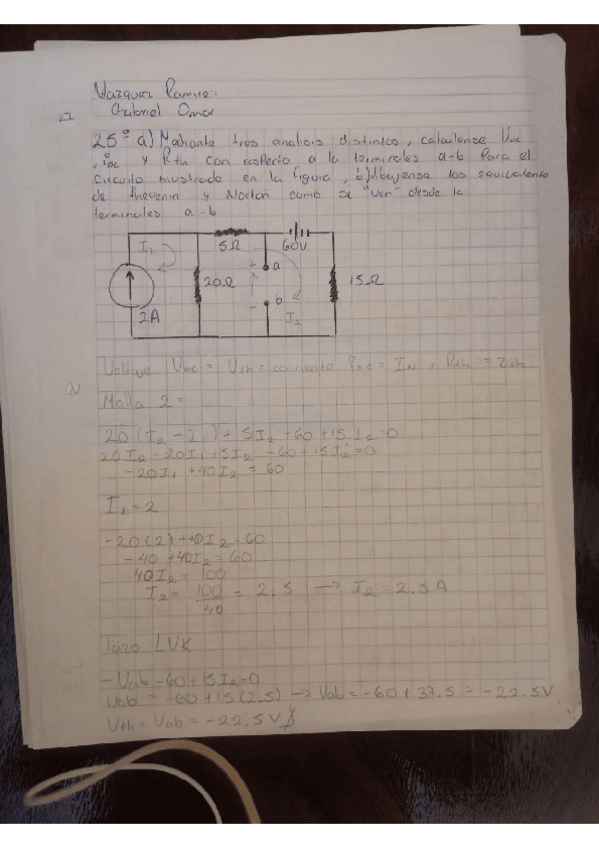 Vazquez Ramirez
Gabriel Omar
25° a) Mediante tres analisis distintos, calculense Voc
, ioc y Rth con respecto a la terminales a-b para el
circuito mustrado en la figura, b) dibujense los equivalente
de thevenin y Norton como se "ven" desde la
terminales a-b
I1
5Ω
60V
+ a
20Ω
15Ω
- b
2A
I2
Voltaje Voc = Vth, corriente ioc = IN, Rth = Zth
Malla 2 =
20(I2 - I1) + 5I2 - 60 + 15I2 = 0
20I2 - 20I1 + 5I2 - 60 + 15I2 = 0
-20I1 + 40I2 = 60
I1 = 2
-20(2) + 40I2 = 60
-40 + 40I2 = 60
40I2 = 100
I2 = 100/40 = 2.5 → I2 = 2.5 A
lazo LVK
-Vab - 60 + 15I2 = 0
Vab = -60 + 15(2.5) → Vab = -60 + 37.5 = -22.5V
Vth = Vab = -22.5 V